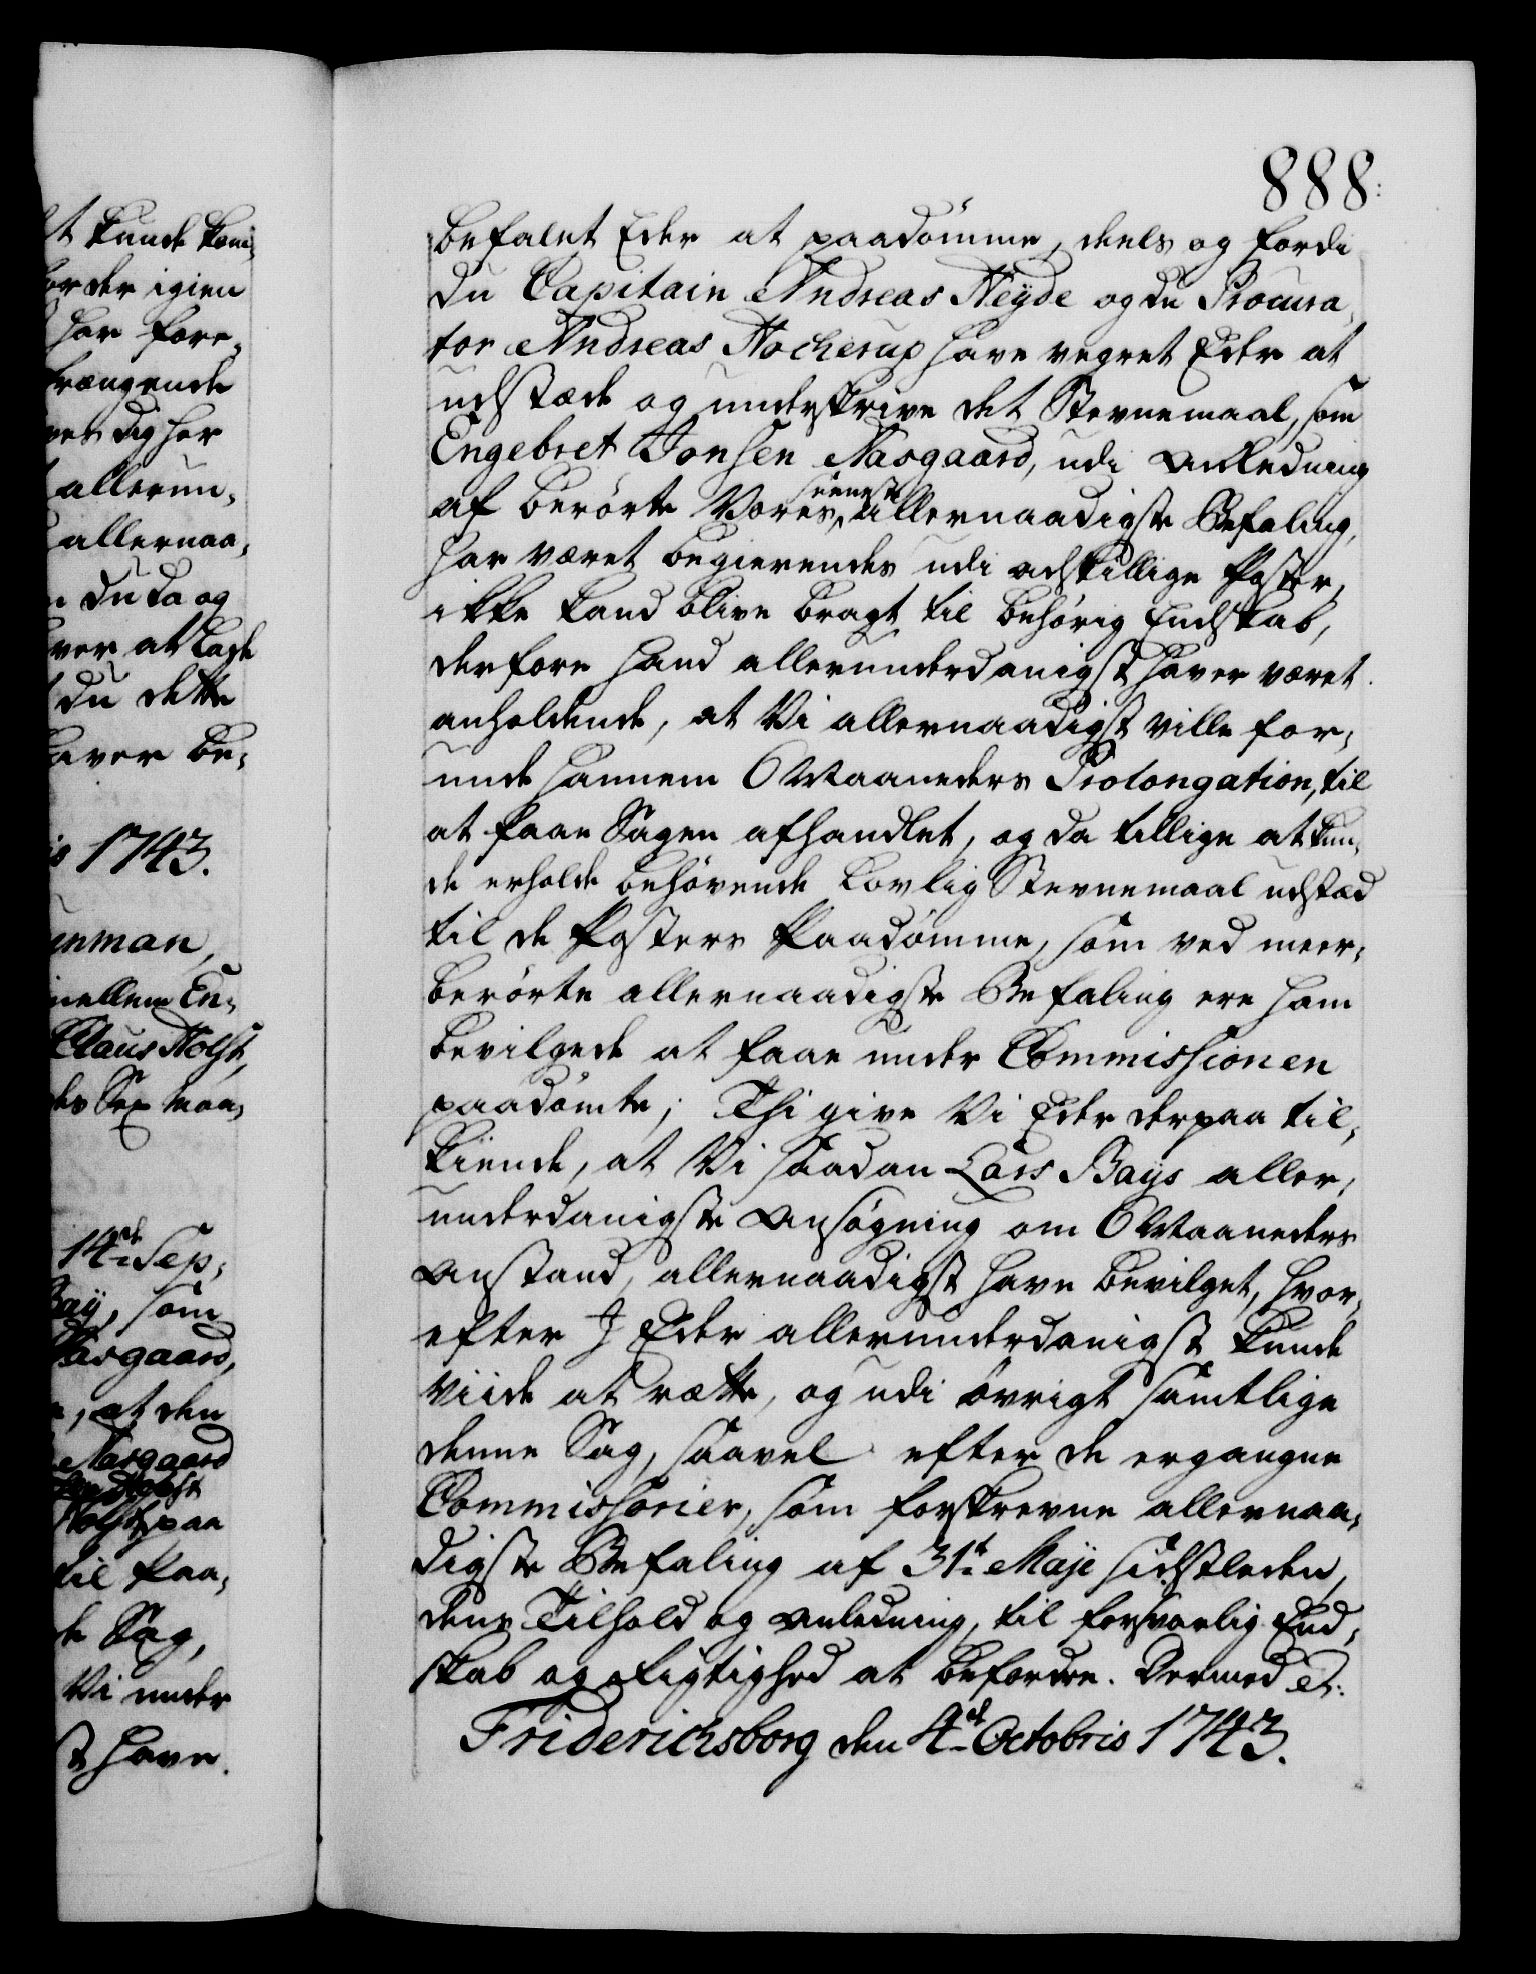 888:
befalet Eder at paadömme, deels og fordi
du Capitain Andreas Heÿde og du Procura,
tor Andreas Hocherup have vegret Eder at
udstæde og underskrive det Stevnemaal, som
Engebret Jonsen Nasgaard, udi Anledning
af berörte Vores seeneste Allernaadigste Befaling,
har været begierendes udi adskillige Poster,
ikke kand blive bragt til behörig Endskab,
derfore hand allerunderdanigst haver været
anholdende, at Vi allernaadigst ville for,
unde hannem 6 Maaneders Prolongation, til
at faae Sagen afhandlet, og da tillige at kun,
de erholde behövende Lovlig Stevnemaal udstæd
til de Posters Paadömme, som ved meer,
berörte allernaadigste Befaling ere ham
bevilgede at faae under Commissionen
paadömte; Thi give Vi Eder derpaa til,
kiende, at Vi saadan Lars Baÿs aller,
underdanigste Ansögning om 6 Maaneders
Anstand, allernaadigst have bevilget, hvor,
efter I Eder allerunderdanigst kunde
viide at rætte, og udi övrigt samtlige
denne Sag, saavel efter de ergangne
Commissorier, som forskrevne allernaa,
digste Befaling af 31te Maji sidstleden,
dens Tilhold og Anledning, til forsvarlig End,
skab og Rigtighed at befordre. Dermed etc:
Friderichsborg den 4de Octobris 1743.
t kunde kom,
for der igien
har fore,
trængende
ver dig her
allerun,
allernaa,
du da og
ver at lade
du dette
haver be,
is 1743.
unman,
imellem En,
Claus Holst,
des Sex maa,
14de Sep,
Baÿ, som
Nasgaard,
, at den
Nasgaard
Holst paa
til Paa,
de Sag,
Vi under
st have.